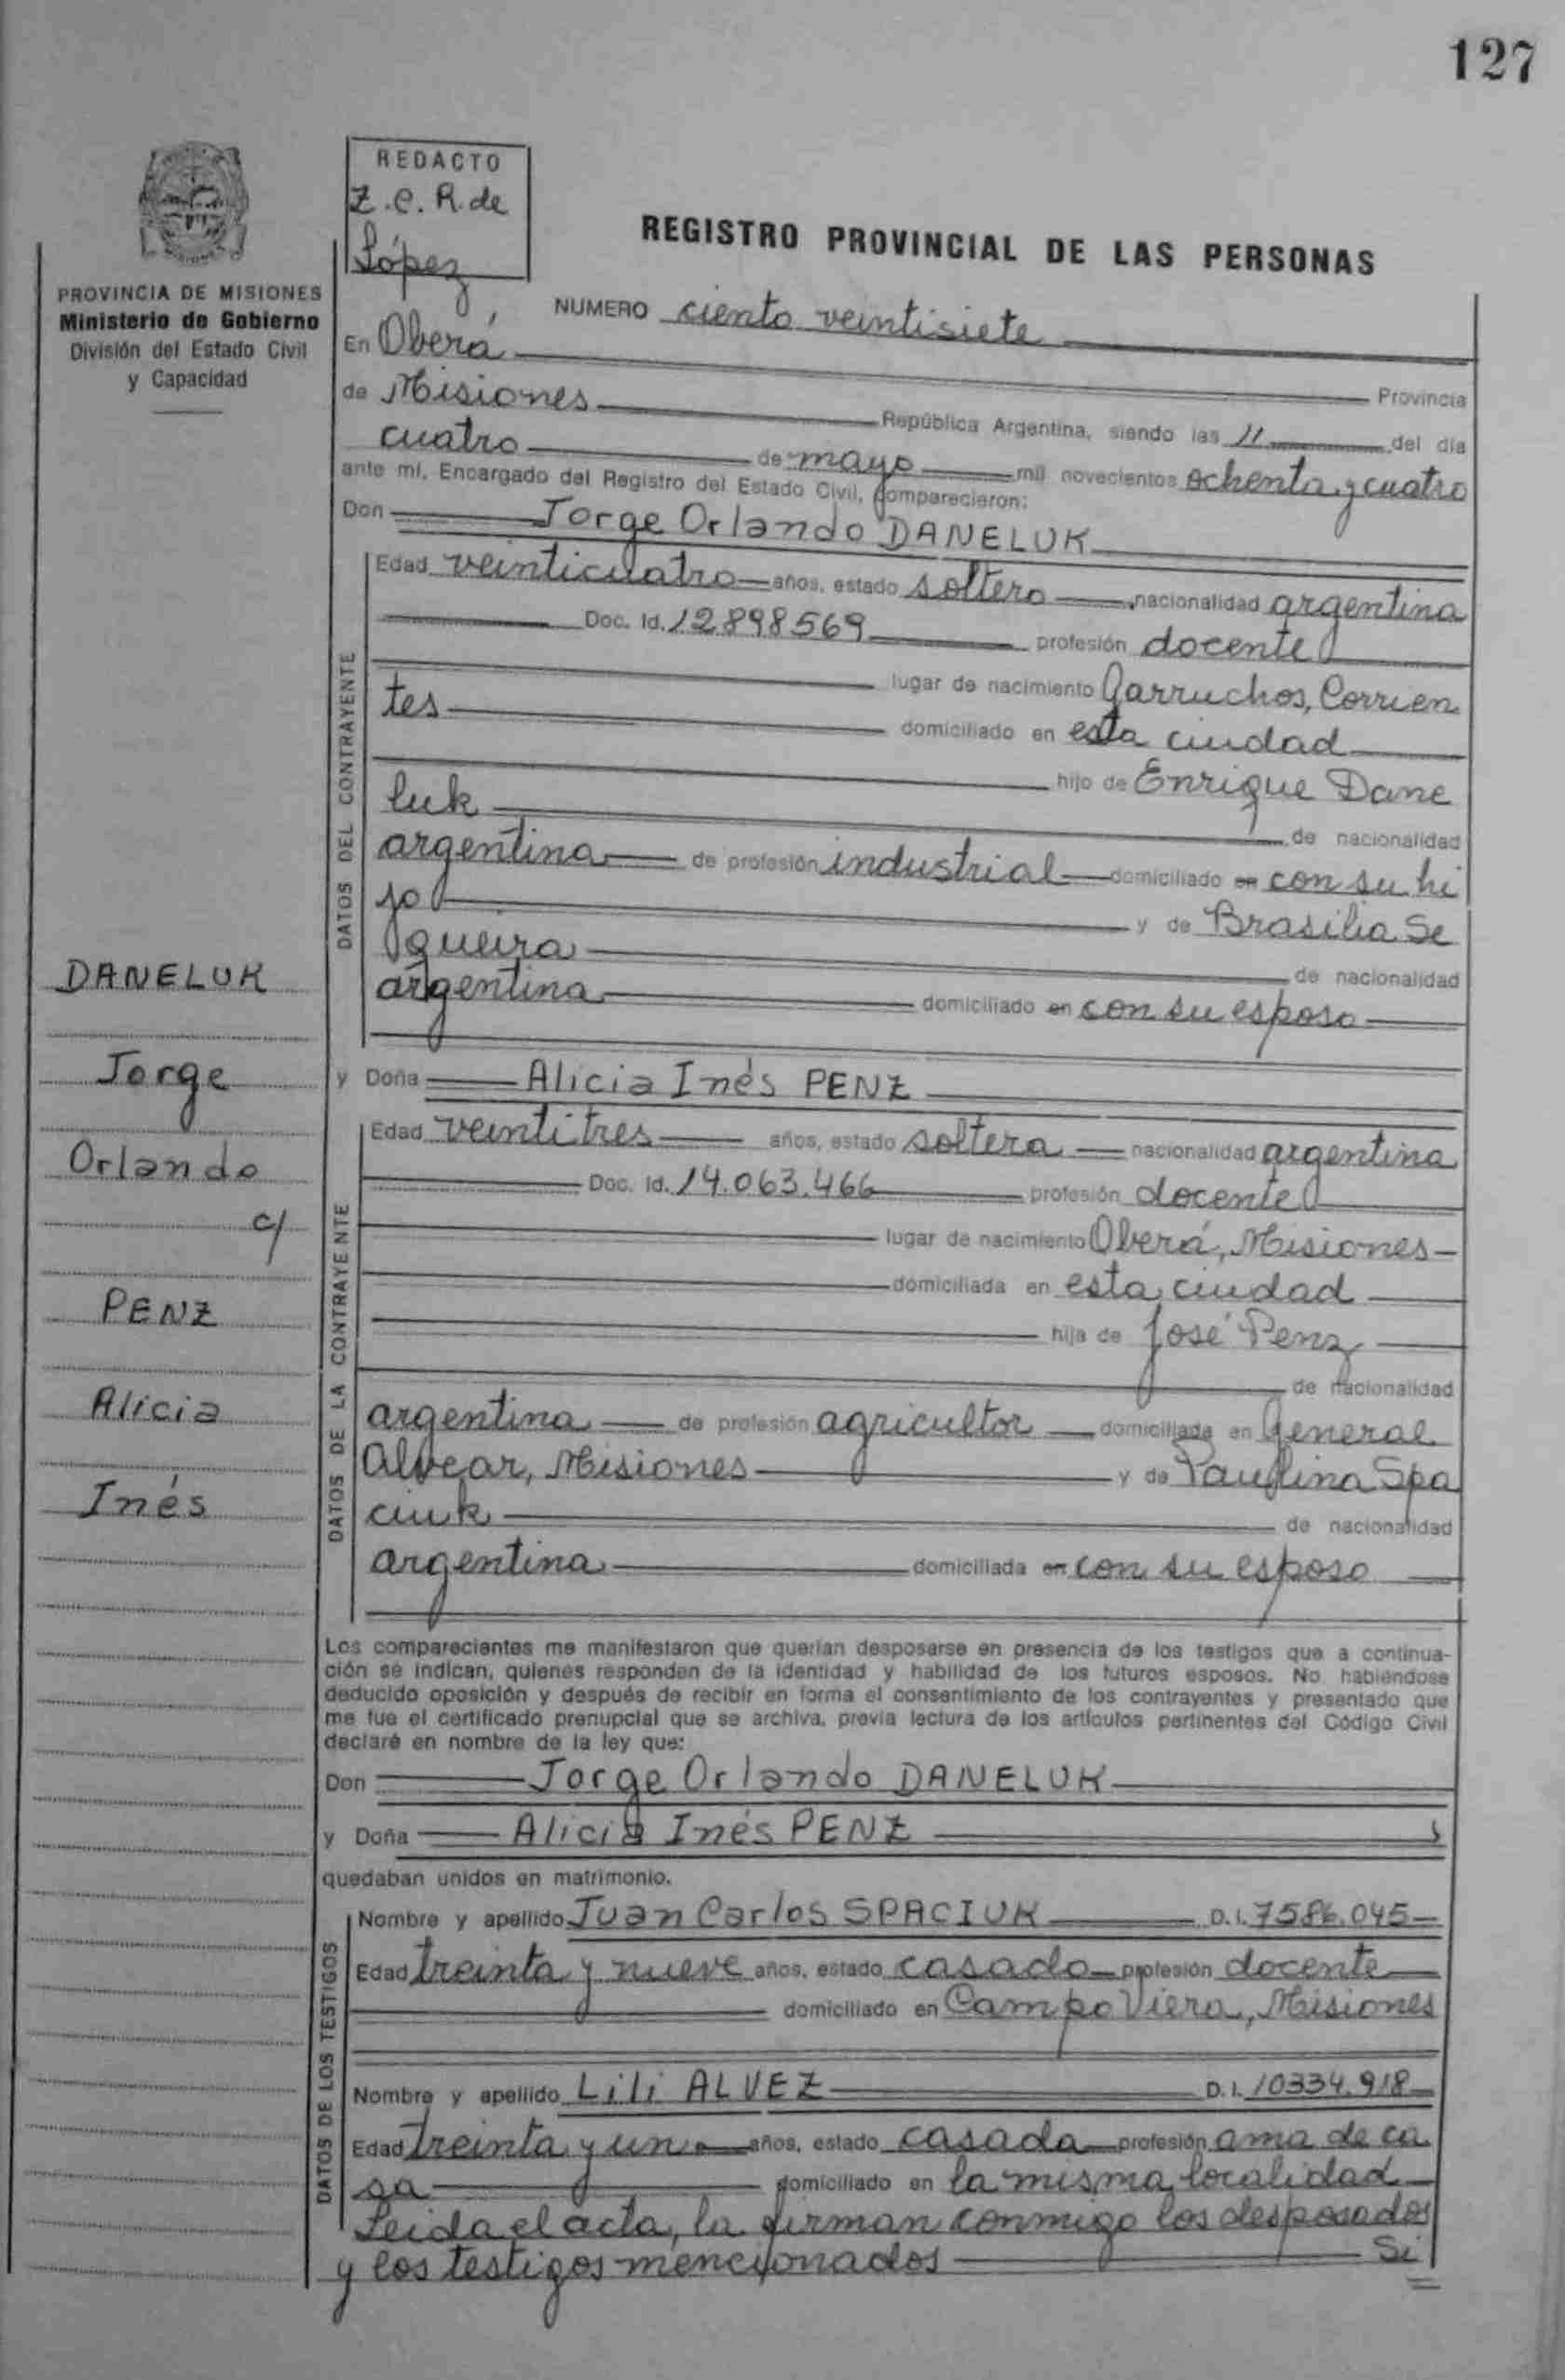 127
REDACTO
Z.C.R. de
López
REGISTRO PROVINCIAL DE LAS PERSONAS
PROVINCIA DE MISIONES
Ministerio de Gobierno
División del Estado Civil
y Capacidad
NUMERO ciento veintisiete
En Oberá
Provincia
de Misiones República Argentina, siendo las 11 del día
cuatro de mayo mil novecientos ochenta y cuatro
ante mí, Encargado del Registro del Estado Civil, comparecieron:
Don Jorge Orlando DANELUK
DATOS DEL CONTRAYENTE
Edad veinticuatro años, estado soltero nacionalidad argentina
Doc. Id. 12898569 profesión docente
lugar de nacimiento Garruchos, Corrien
tes domiciliado en esta ciudad
hijo de Enrique Dane
luk de nacionalidad
argentina de profesión industrial domiciliado en con su hi
jo y de Brasilia Se
queira de nacionalidad
argentina domiciliado en con su esposo
y Doña Alicia Inés PENZ
DATOS DE LA CONTRAYENTE
Edad veintitres años, estado soltera nacionalidad argentina
Doc. Id. 14.063.466 profesión docente
lugar de nacimiento Oberá, Misiones
domiciliada en esta ciudad
hija de José Penz
de nacionalidad
argentina de profesión agricultor domiciliada en General
Alvear, Misiones y de Paulina Spa
ciuk de nacionalidad
argentina domiciliada en con su esposo
DANELUK
Jorge
Orlando
c/
PENZ
Alicia
Inés
Los comparecientes me manifestaron que querían desposarse en presencia de los testigos que a continua-
ción se indican, quienes responden de la identidad y habilidad de los futuros esposos. No habiéndose
deducido oposición y después de recibir en forma el consentimiento de los contrayentes y presentado que
me fue el certificado prenupcial que se archiva, previa lectura de los artículos pertinentes del Código Civil
declaré en nombre de la ley que:
Don Jorge Orlando DANELUK
y Doña Alicia Inés PENZ
quedaban unidos en matrimonio.
DATOS DE LOS TESTIGOS
Nombre y apellido Juan Carlos SPACIUK D.I. 7586.045
Edad treinta y nueve años, estado casado profesión docente
domiciliado en Campo Viera, Misiones
Nombre y apellido Lili ALVEZ D.I. 10334.918
Edad treinta y un años, estado casada profesión ama de ca
sa domiciliado en la misma localidad
Leida el acta, la firman conmigo los desposados
y los testigos mencionados Si